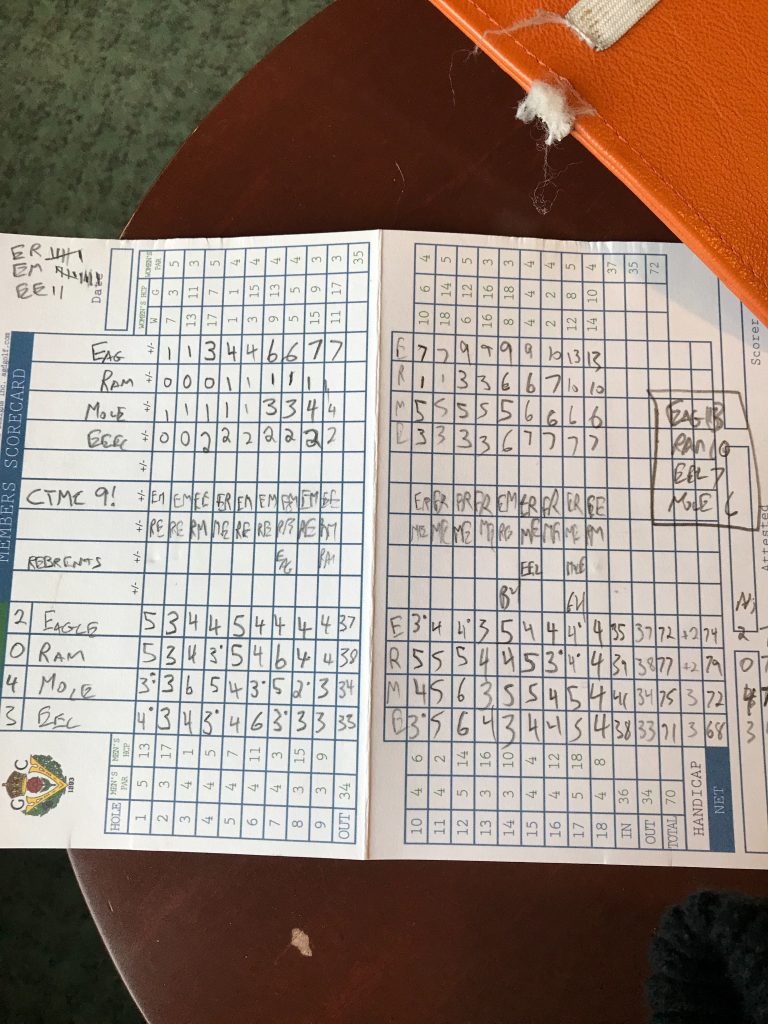 ER
EM
EE 11
Date
MEMBERS SCORECARD
WOMEN'S HCP W 7 13 17 1 3 9 5 15 11
G 3 11 7 1 15 13 5 9 17
WOMEN'S PAR 5 3 5 4 4 4 4 3 3 35
EAG +/- 1 1 3 4 4 6 6 7 7
RAM +/- 0 0 0 1 1 1 1 1
MOLE +/- 1 1 1 1 1 3 3 4 4
EEEL +/- 0 0 2 2 2 2 2 2 2
CTMC 9! +/- EM EM EE ER EM EM EM EM EE
+/- RE RE RM ME RE RE RE RM
REBRENTS +/-
+/-
2 EAGLE 5 3 4 4 5 4 4 4 4 37
0 RAM 5 3 4 3 5 4 6 4 4 38
4 MOLE 3 3 6 5 4 3 5 2 3 34
3 EEL 4 3 4 3 4 6 3 3 3 33
MEN'S HCP 13 17 1 5 7 11 3 15 9
MEN'S PAR 5 3 4 4 4 4 4 3 3 34
HOLE 1 2 3 4 5 6 7 8 9 OUT
G C
1893
10 18 6 16 8 4 2 12 14
6 14 12 16 18 4 2 8 10
4 5 5 3 3 4 4 5 4 37 35 72
E 7 7 9 9 9 9 10 13 13
R 1 1 3 3 6 6 7 10 10
M 5 5 5 5 5 6 6 6 6
E 3 3 3 3 6 7 7 7 7
ER ER ER ER EM ER ER ER EE
ME ME ME ME ME ME ME RM
EEL
E 3 4 4 3 5 4 4 4 4 35 37 72 +2 74
R 5 5 5 4 4 5 3 4 4 39 38 77 +2 79
M 4 5 6 3 5 5 4 5 4 41 34 75 3 72
E 3 5 6 4 3 4 4 5 4 38 33 71 3 68
6 2 14 16 10 4 12 18 8
4 4 5 3 3 4 4 5 4 36 34 70
10 11 12 13 14 15 16 17 18 IN OUT TOTAL HANDICAP NET
EAG 13
RAM 10
EEL 7
MOLE 6
Scorer
Attested